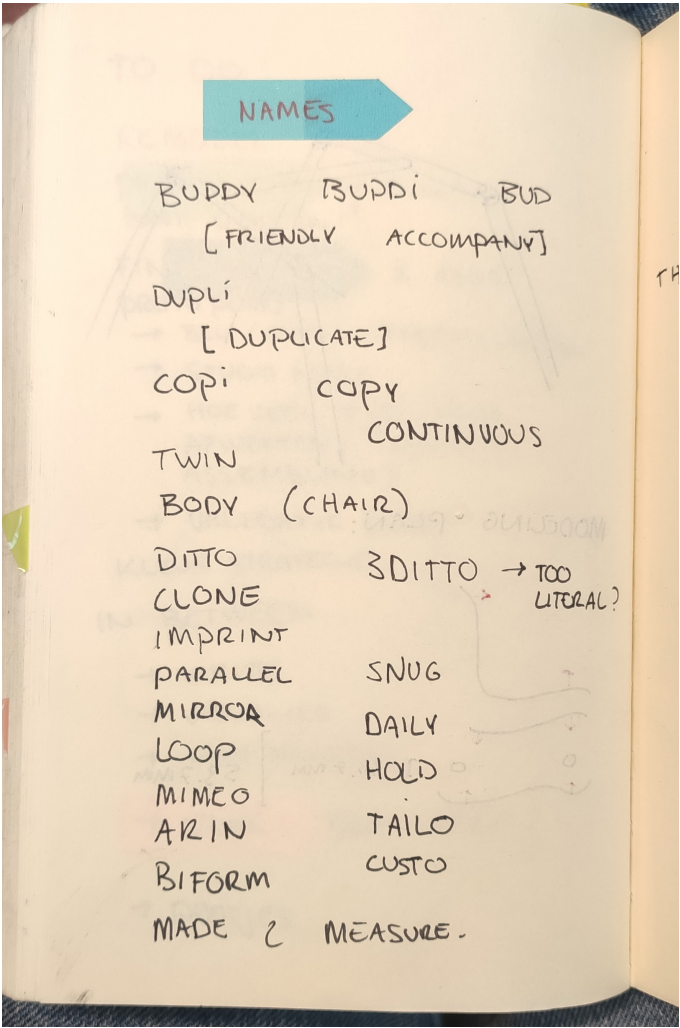 NAMES
BUDDY BUDDi BUD
[FRIENDLY ACCOMPANY]
DUPLi
[DUPLICATE]
COPi COPY
CONTINUOUS
TWIN
BODY (CHAIR)
DITTO 3DITTO → TOO
LITERAL?
CLONE
IMPRINT
PARALLEL SNUG
MIRROR DAILY
LOOP HOLD
MIMEO
ARIN TAILO
BIFORM CUSTO
MADE 2 MEASURE.
TH